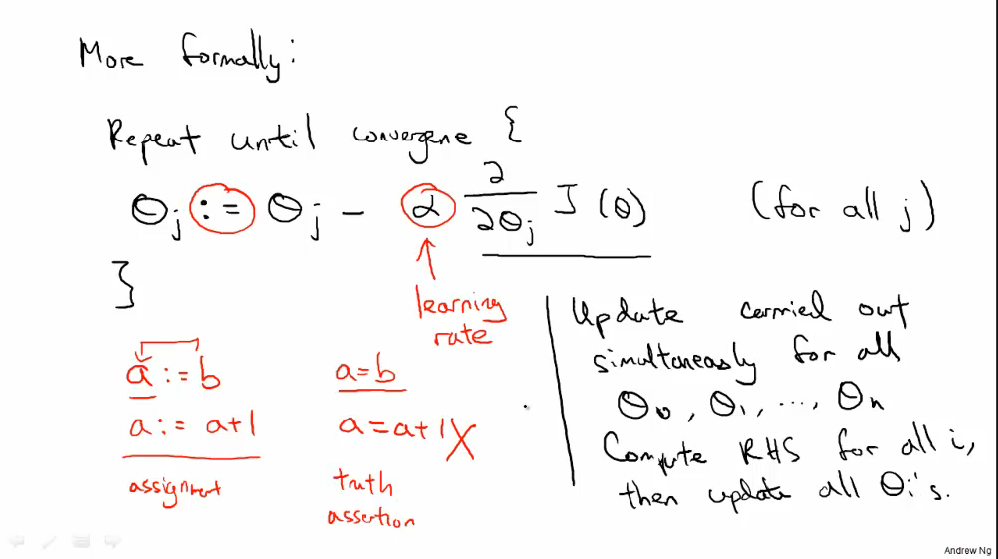 More formally:
Repeat until convergene {
θj := θj - α ∂/∂θj J(θ) (for all j)
}
learning
rate
a := b
a := a+1
assignment
a=b
a=a+1 X
truth
assertion
Update carried out
simultaneously for all
θ0, θ1, ..., θn
Compute RHS for all i,
then update all θi's.
Andrew Ng